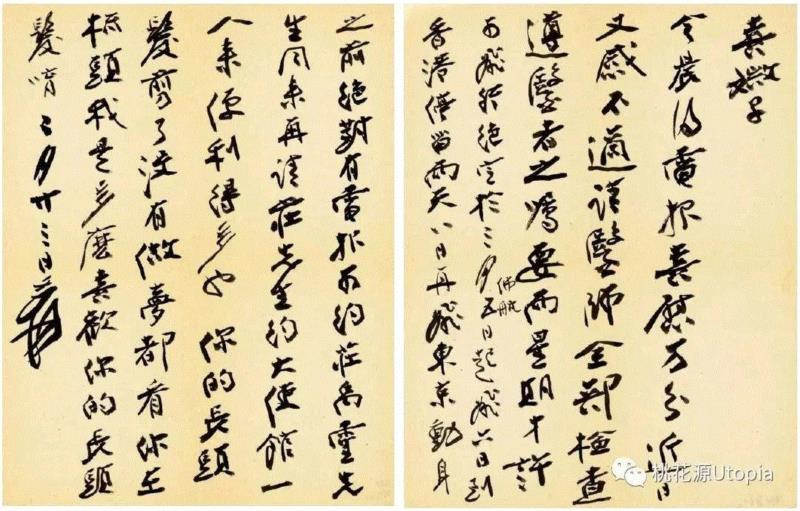 喜媺子
今晨得電報喜慰万分近日
又感不適請醫師全部檢查
遵醫者之囑要兩星期才許
可飛現絕定於三月五日起飛六日到
佛航
香港停留兩天八日再飛東京動身
之前絕對有電報可約莊禹靈先
生同來再請莊先生約大使館一
人來便利得多也 你的長頭
髮剪了沒有做夢都看你在
梳頭我是多麼喜歡你的長頭
髮唷 二月廿三日爰
桃花源Utopia